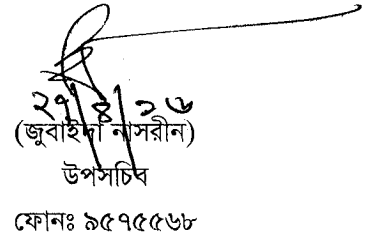 ২৭/৪/১৬
(জুবাইদা নাসরীন)
উপসচিব
ফোনঃ ৯৫৭৫৫৬৮